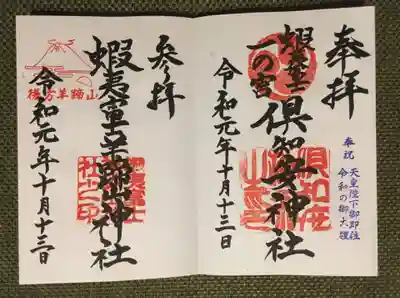 奉拝
奉祝 天皇陛下御即位
令和の御大礼
蝦夷富士
一の宮
倶知安神社
令和元年十月十三日
参拝
蝦夷富士羊蹄山神社
山蹄羊方後
令和元年十月十三日